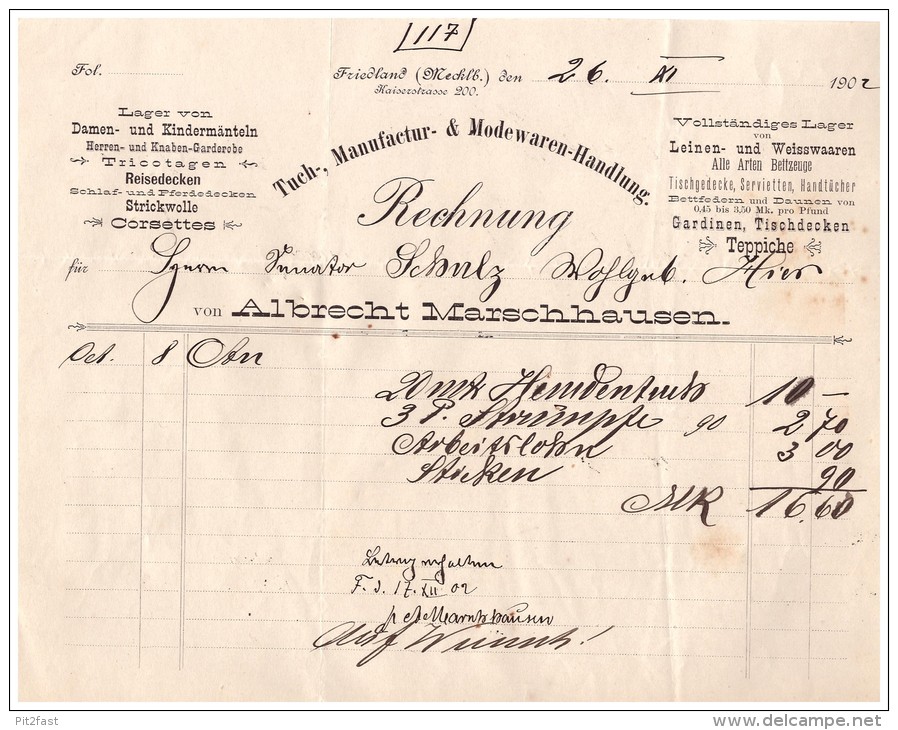 117
Fol.
Friedland (Mecklb.) den 26. XI 1902
Kaiserstrasse 200.
Lager von
Damen- und Kindermänteln
Herren- und Knaben-Garderobe
Tricotagen
Reisedecken
Schlaf- und Pferdedecken
Strickwolle
Corsettes
Tuch-, Manufactur- & Modewaren-Handlung.
Rechnung
Vollständiges Lager
von
Leinen- und Weisswaaren
Alle Arten Bettzeuge
Tischgedecke, Servietten, Handtücher
Bettfedern und Daunen von
0,45 bis 3,50 Mk. pro Pfund
Gardinen, Tischdecken
Teppiche
für Herrn Senator Schulz Wohlgeb. Hier
von Albrecht Marschhausen.
Oct. 8 An
20 mtr Hemdentuch 10 —
3 P. Strümpfe 90 2 70
Arbeitslohn 3 00
Sticken 90
MK 16,60
Betrag erhalten
F. d. 17. XII 02
p A Marschhausen
Auf Wunsch!
Pit2fast
www.delcampe.net